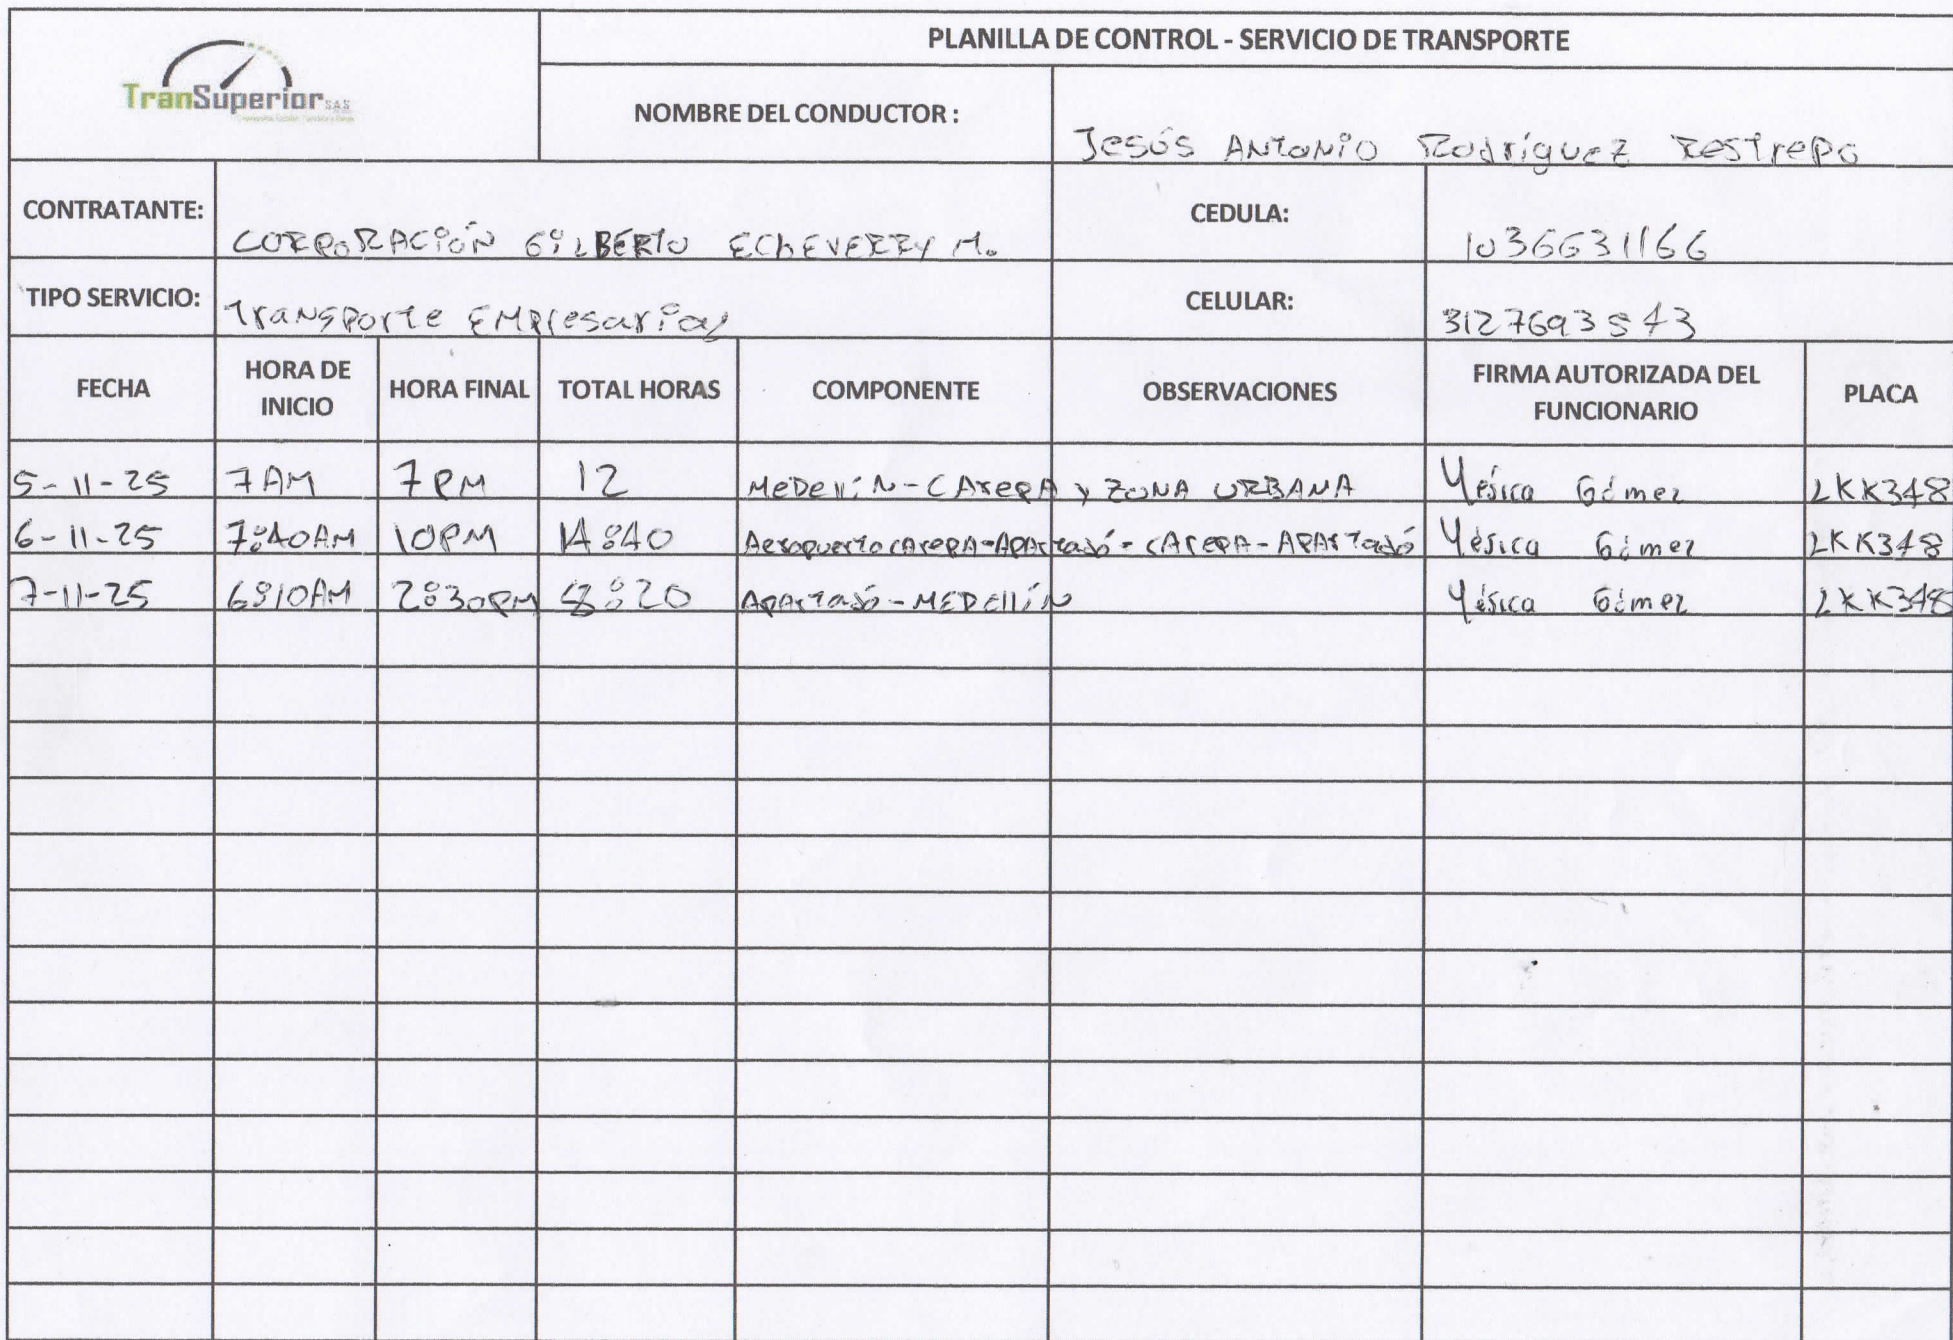 PLANILLA DE CONTROL - SERVICIO DE TRANSPORTE
TranSuperior SAS
NOMBRE DEL CONDUCTOR : Jesús Antonio Rodríguez Restrepo
CONTRATANTE: CORPORACIÓN GILBERTO EChEVERRY M. CEDULA: 1036631166
TIPO SERVICIO: Transporte EMPresarial CELULAR: 3127693843
FECHA HORA DE INICIO HORA FINAL TOTAL HORAS COMPONENTE OBSERVACIONES FIRMA AUTORIZADA DEL FUNCIONARIO PLACA
5-11-25 7AM 7PM 12 MeDellíN-CArepA y ZONA URBANA Yésica Gómez LKK348
6-11-25 7:40AM 10PM 14:40 Aeropuerto CArepA-APArtadó-CArepA-APArtadó Yésica Gómez LKK348
7-11-25 6:10AM 2:30PM 8:20 APArtadó-MEDellíN Yésica Gómez LKK348